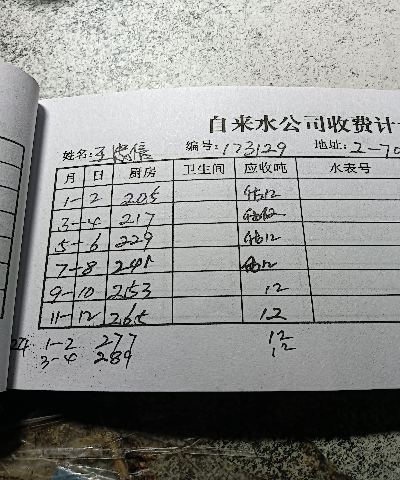 自来水公司收费计
姓名:王忠信 编号:173129 地址:2-70
月 日 厨房 卫生间 应收吨 水表号
1-2 205 估12
3-4 217 估12
5-6 229 估12
7-8 241 估12
9-10 253 12
11-12 265 12
24 1-2 277 12
3-4 289 12